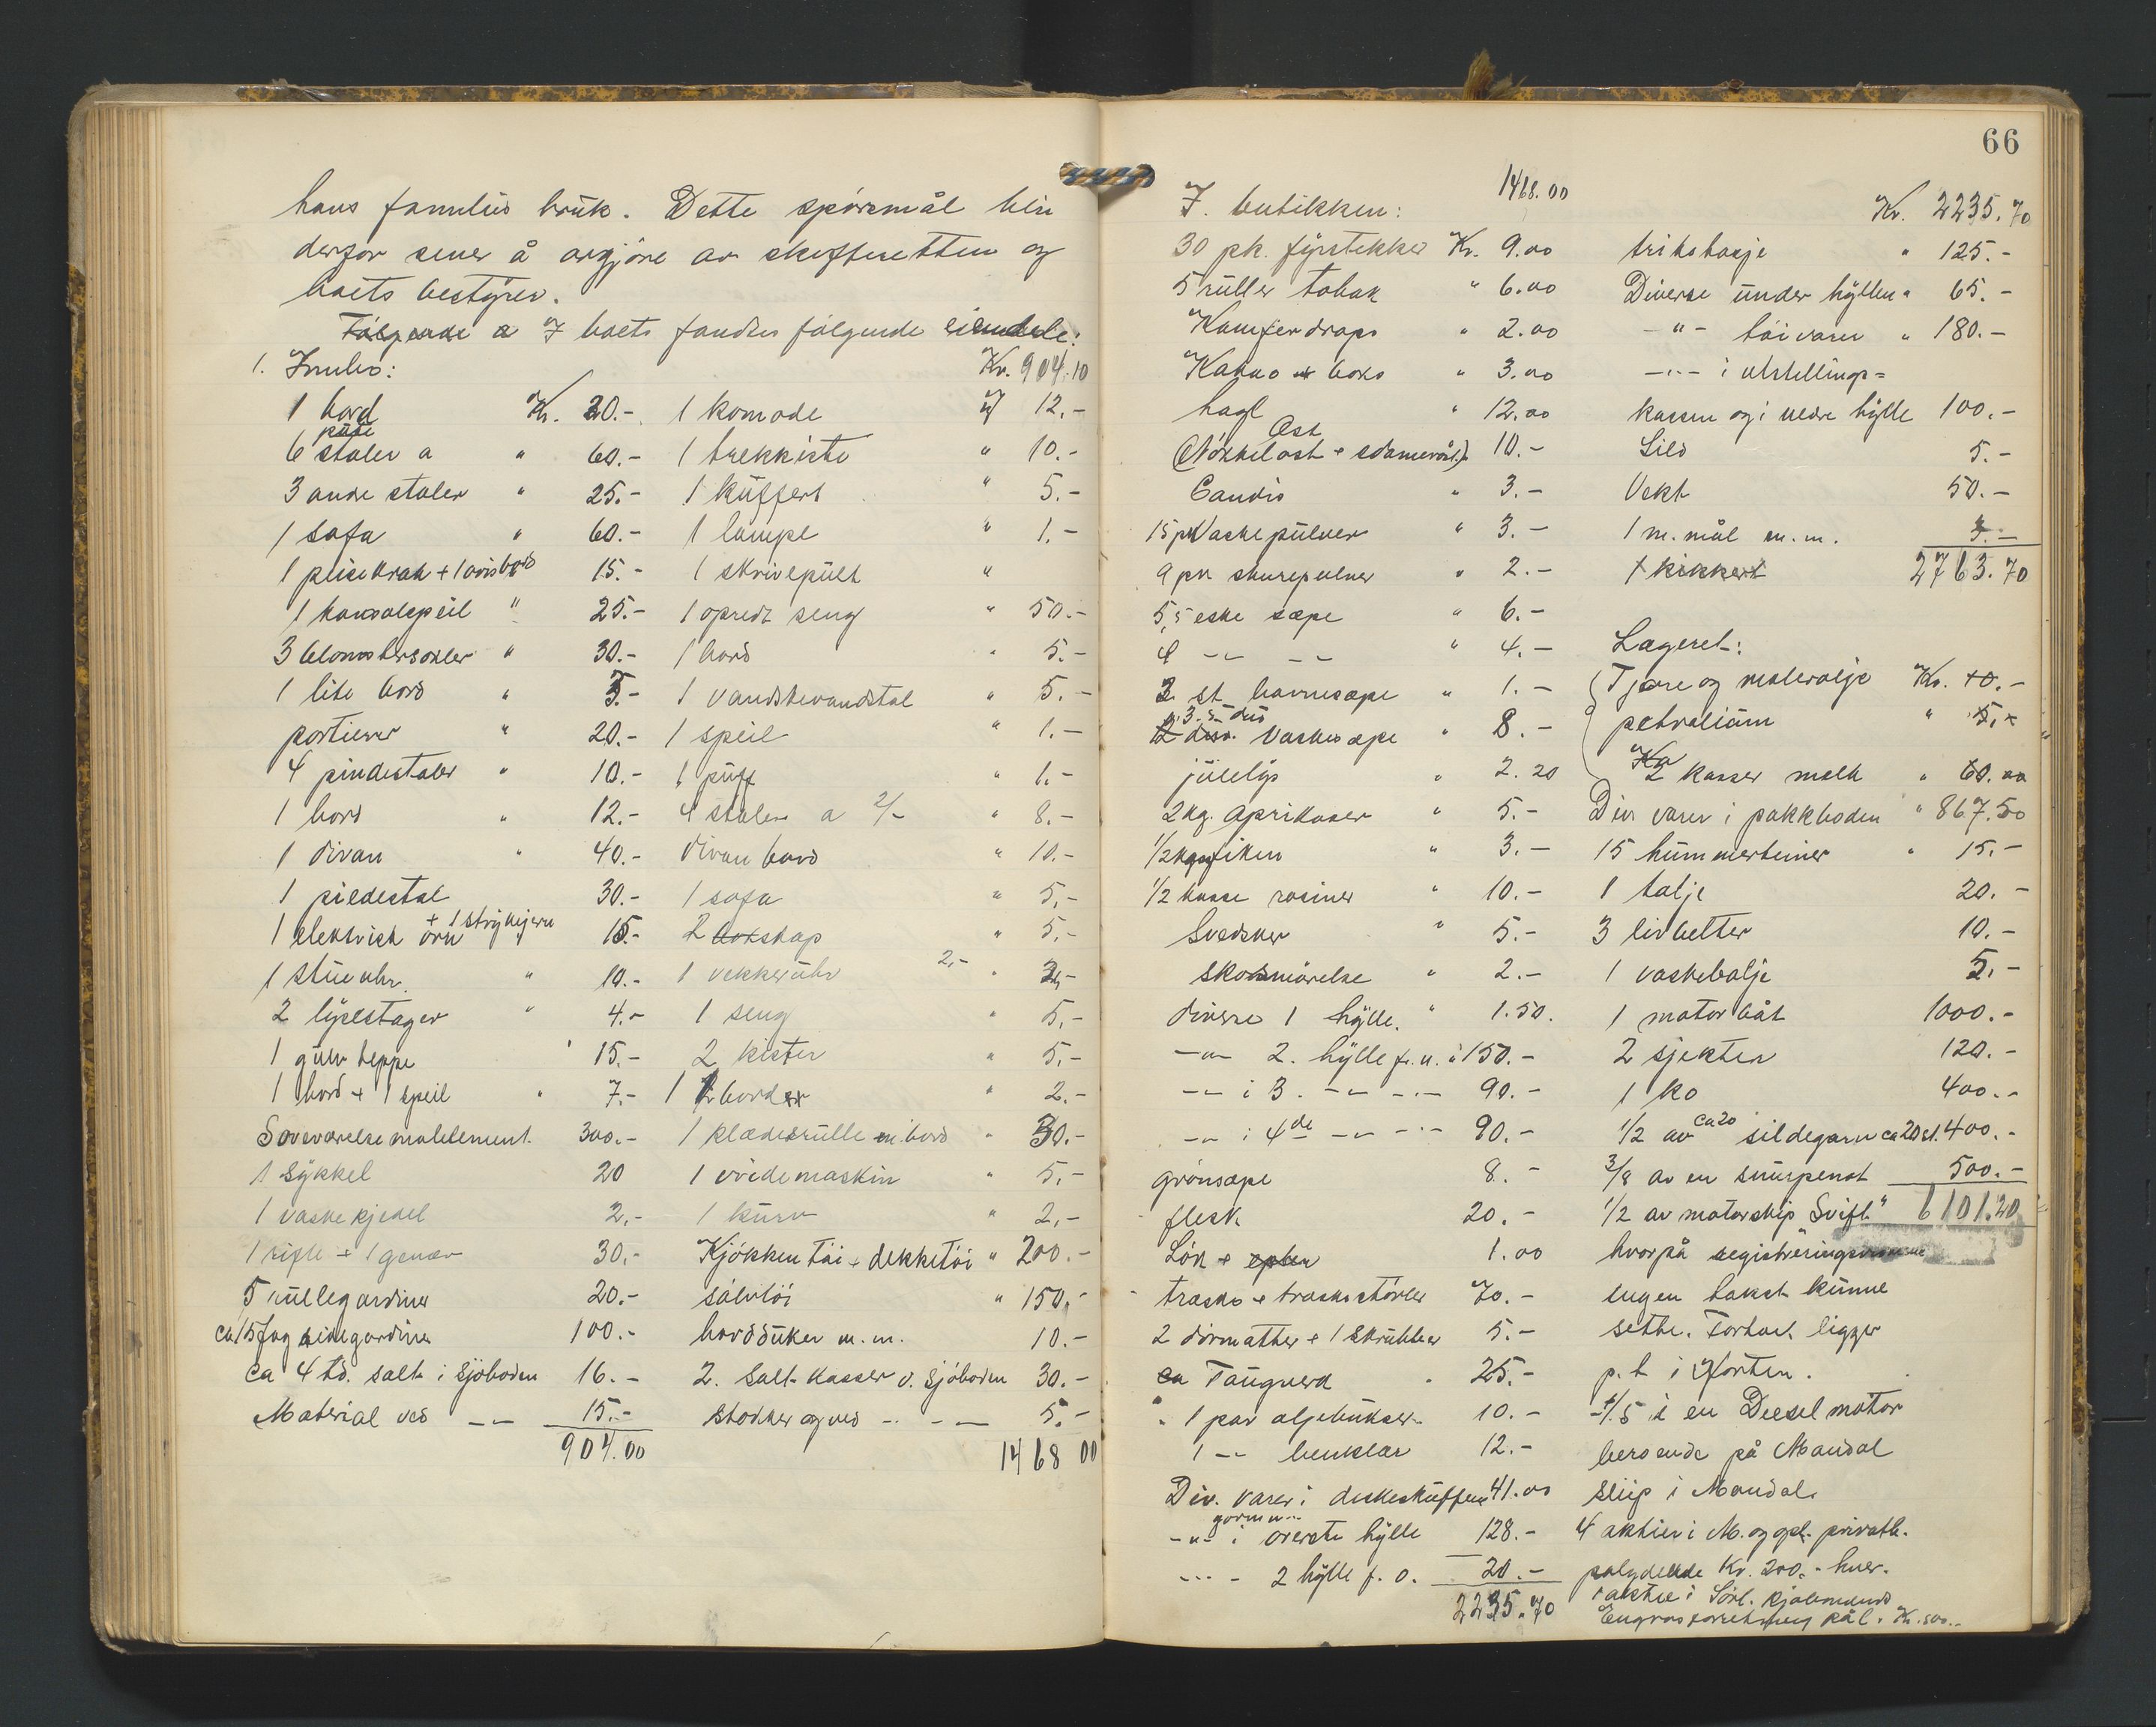 hans families bruk. Dette spörsmål blir
derfor senere å avgjöre av skifteretten og
boets bestyrer.
I boets fandtes fölgende eiendele:
1. Innbo: Kr. 904.10
1 bord Kr. 20.-
6 püte stoler a " 60.-
3 andre stoler " 25.-
1 sofa " 60.-
1 pisekrak + 1 avisbord 15.-
1 konsolspeil " 25.-
3 blomstersokler " 30.-
1 lite bord " 5.-
portierer " 20.-
4 pindestoler " 10.-
1 bord " 12.-
1 divan " 40.-
1 piedestal 30.-
1 elektrisk ovn + 1 strykejern " 15.-
1 stueuhr " 10.-
2 lysestager " 4.-
1 gulvteppe " 15.-
1 bord + 1 speil " 7.-
Soveværelsemøblement. 300.-
1 sykkel 20
1 vaskekjedel 2,-
1 rifle + 1 gevær 30,-
5 rullegardiner 20.-
ca 15 fag gardiner 100.-
ca 4 td. salt i sjöboden 16.-
Material ved -"- 15.-
904.00
1 komode " 12,-
1 trekkiste " 10.-
1 kuffert " 5.-
1 lampe " 1.-
1 skrivepult "
1 opredt seng " 50.-
1 bord " 5.-
1 vandskevandstol " 5.-
1 speil " 1.-
1 puff " 1.-
4 stoler a 2/- " 8.-
divanbord " 10.-
1 sofa " 5,-
2 skap " 5,-
1 vekkeruhr 2,- " 3,-
1 seng " 5,-
2 kister " 5,-
1 bord " 2.-
1 klæderulle m. bord " 30.-
1 vridemaskin " 5,-
1 kurv " 2,-
Kjökkentöi + dekketöi " 200.-
sölvtöi " 150.-
bordduker m.m. 10.-
2. salt kasser v. sjöboden 30.-
stokker og ved -"- 5.-
1468 00
66
I. butikken: 1468.00
30 pk. fyrstekker Kr. 9.00
5 ruller tobak " 6.00
Kamferdrops " 2.00
Kakao boks " 3.00
hagl " 12.00
Ost
(Nökkelost + edamerost) 10.-
Candis " 3.-
15 pk Vaskepulver " 3.-
9 pk skurepulver " 2.-
5,5 eske sæpe " 6.-
4 -"- -"- " 4.-
3 st. barnesæpe " 1.-
3.5 dus vaskesæpe " 8.-
julelys " 2.20
2 kg. Aprikoser " 5.-
1/2 kg fiken " 3.-
1/2 kasse rosiner " 10.-
Svedsker " 5.-
skosmörelse " 2.-
diverse 1 hylle. " 1.50.
-"- 2. hylle fr. n. " 150.-
-"- i 3. -"- -"- 90.-
-"- i 4de -"- -"- 90.-
grönsæpe 8.-
flesk. 20.-
Lök + epler 1.00
trasko + traskostövler 70.-
2 dörmatter + 1 skrubber 5.-
ca Taugverd " 25.-
1 par oljebukser 10.-
1 -"- benklær 12.-
Div. varer i diskeskuffene 41.00
-"- i överste hylle 128.-
-"- 2 hylle f. o. 20.-
2235.70
Kr. 2235.70
trikotasje " 125.-
Diverse under hyllen " 65.-
-"- töivarer " 180.-
-"- i utstillings=
kassen og i nedre hylle 100.-
Sild 5.-
Vekt 50.-
1 m. mål m.m. 3.-
1 kikkert 2763.70
Lageret:
Tjære og malerolje Kr. 10.-
petroleum " 5.-
2 kasser melk " 60.00
Div varer i pakkboden " 867.50
15 hummerteiner " 15.-
1 talje 20.-
3 livbelter 10.-
1 vaskebalje 5.-
1 motorbåt 1000.-
2 sjekter 120.-
1 ko 400.-
1/2 av ca 20 sildegarn ca 20 st. 400.-
3/8 av en snurpenot 500.-
1/2 av motorskip "Svift" 6101.20
hvorpå
ingen takst kunne
settes. Fartöiet ligger
p.t i Horten.
1/5 i en Dieselmotor
beroende på Mandal
slip i Mandal.
4 aktier i M. og opl. privatb.
pålydende Kr. 200.- hver.
1 aktie i Sörl. kjöbmænds
Engrosforretning pål. Kr. 500.-